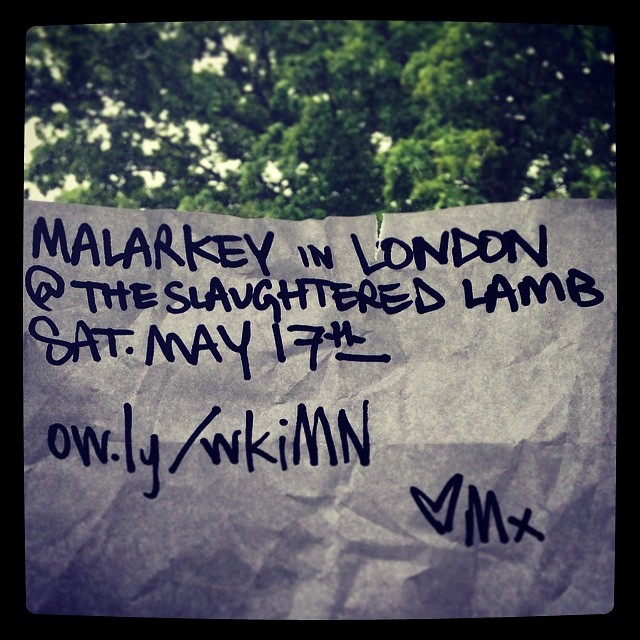 MALARKEY IN LONDON
@ THE SLAUGHTERED LAMB
SAT. MAY 17th
ow.ly/wkiMN
♡Mx